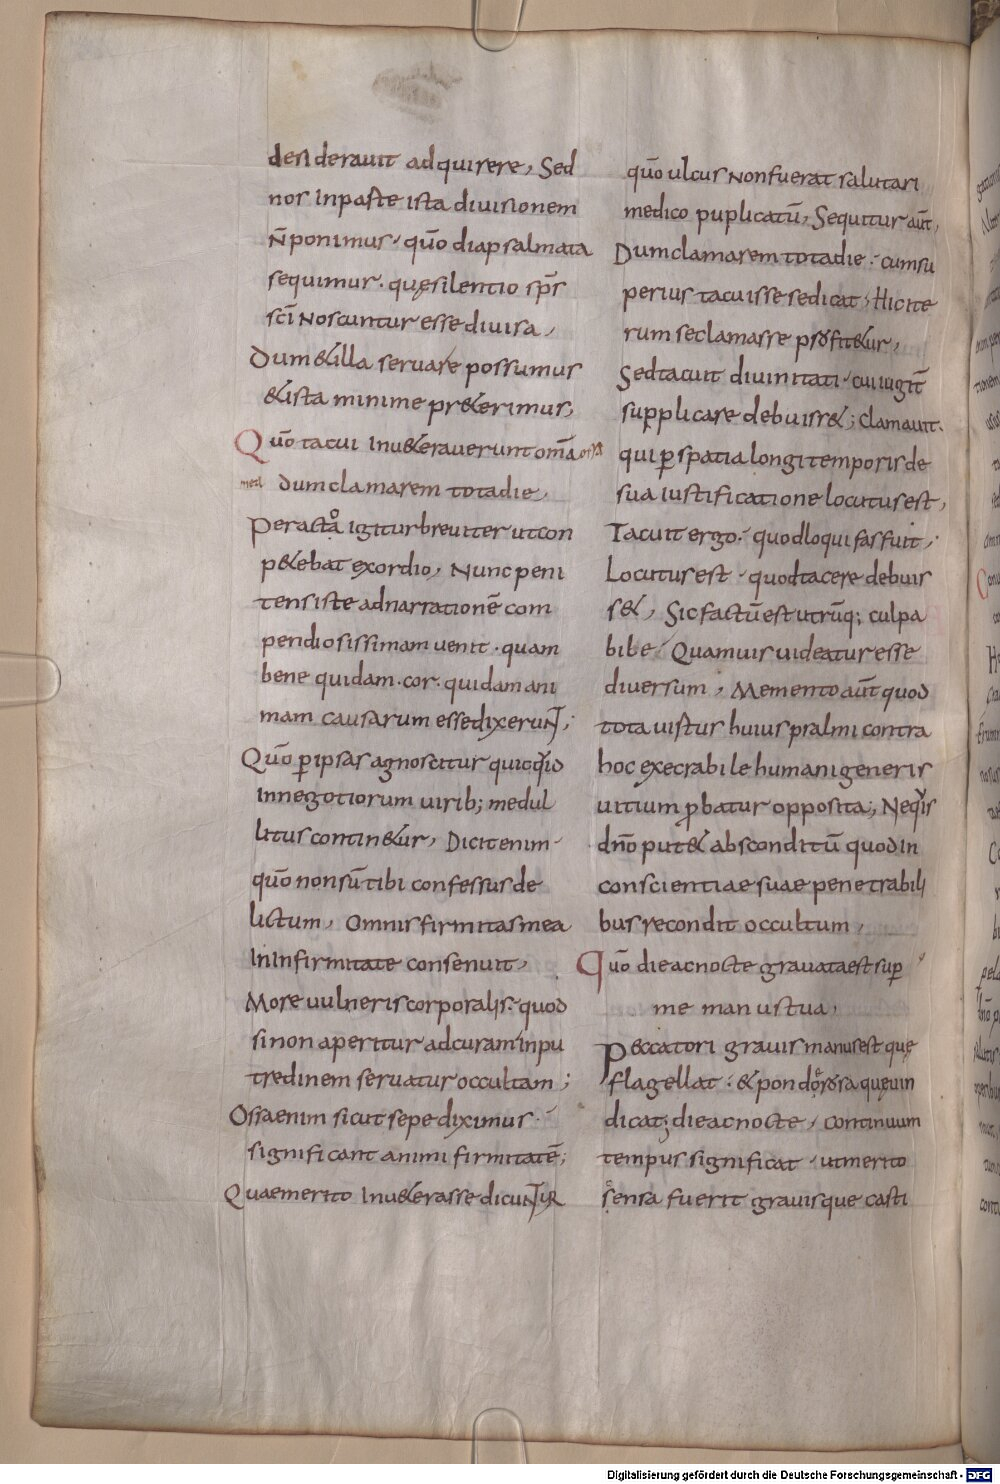 desiderauit adquirere, Sed
nos inpaste ista diuisionem
n̄ ponimus · quō diapsalmata
sequimur · quę silentio sp̄s
sc̄i Noscuntur esse diuisa,
Dum & illa seruare possumus
& ista minime pr&erimus;
Quō tacui Inu&erauerunt om̄a ossa
mea dum clamarem tota die,
Peracta igitur breuiter ut con
p&ebat exordio, Nunc peni
tens iste ad narrationē com
pendiosissimam uenit · quam
bene quidam · cor · quidam ani
mam causarum esse dixerunt;
Quō p̄ ipsas agnoscitur quicq̇d
in negotiorum uirib; medul
litus contin&ur, Dicit enim ·
quō non sū tibi confessus de
lictum, Omnis firmitas mea
in Infirmitate consenuit,
More uulneris corporalis · quod
si non aperitur ad curam inpu
tredinem seruatur occultam;
Ossa enim sicut sepe diximus ·
significant animi firmitatē;
Quae merito Inu&erasse dicuntur
quō ulcus Non fuerat salutari
medico puplicatū, Sequitur aūt,
Dum clamarem tota die · cum su
perius tacuisse se dicat, Hic ite
rum se clamasse profit&ur,
Sed tacuit diuinitati · cui iugit̄
supplicare debuiss&; clamauit ·
qui p̄ spatia longi temporis de
sua iustificatione locutus est,
Tacuit ergo · quod loqui fas fuit,
Locutus est · quod tacere debuis
s&, Sic factū est utrūq; culpa
bile · Quamuis uideatur esse
diuersum, Memento aūt quod
tota uirtus huius psalmi contra
hoc execrabile humani generis
uitium p̄batur opposita, Neq̇s
dn̄o put& absconditū quod in
conscientiae suae penetrabili
bus recondit occultum,
Quō die ac nocte grauata est sup̄
me manus tua,
Peccatori grauis manus est quę
flagellat · & ponderosa quę uin
dicat; die ac nocte, continuum
tempus significat · ut merito
sensa fuerit grauisque casti
Digitalisierung gefördert durch die Deutsche Forschungsgemeinschaft - DFG